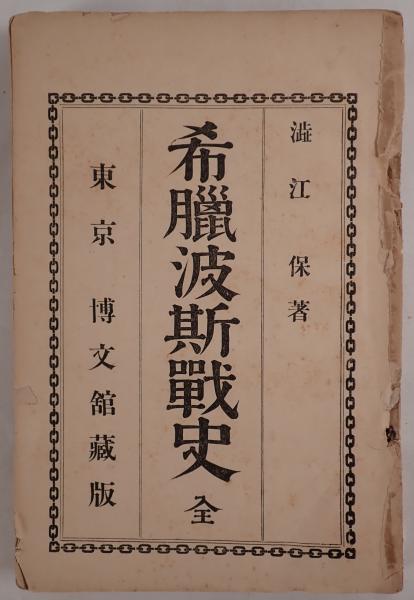 澁江保著
希臘波斯戰史 全
東京 博文館藏版